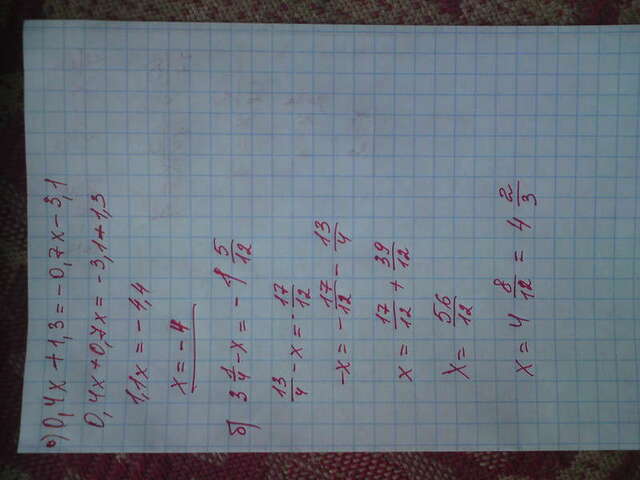 а) 0,4x + 1,3 = -0,7x - 3,1
0,4x + 0,7x = -3,1 + 1,3
1,1x = -4,4
x = -4
б) 3 1/4 - x = -1 5/12
13/4 - x = -17/12
-x = -17/12 - 13/4
x = 17/12 + 39/12
x = 56/12
x = 4 8/12 = 4 2/3